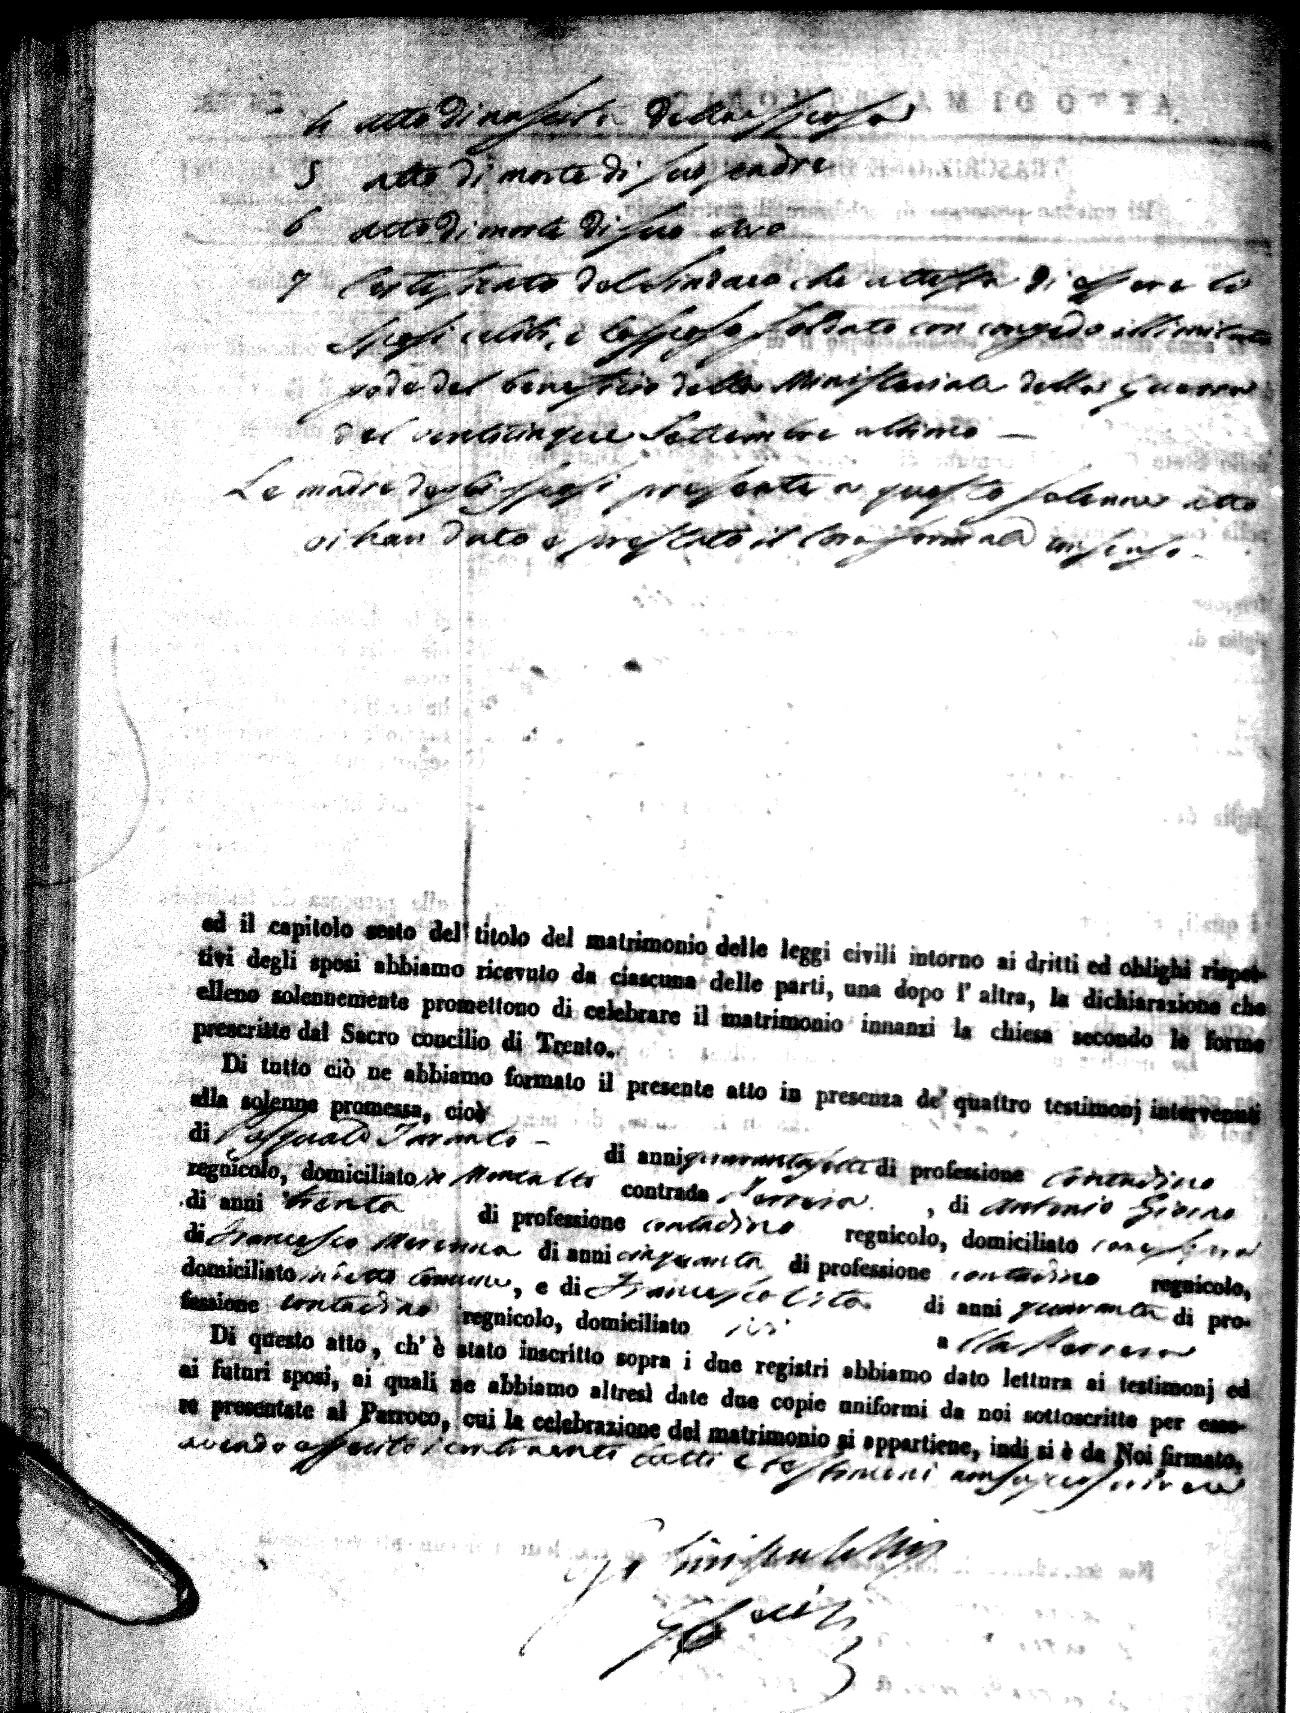 4 atto di nascita della sposa
5 atto di morte di suo padre
6 atto di morte di suo avo
7 Certificato del Sindaco che attesta di essere li
sposi celibi, e lo sposo soldato con congedo illimitato
gode del beneficio della Ministeriale della Guerra
del venticinque Settembre ultimo —
Le madre degli sposi presente a questo solenne atto
vi han dato e prestato il loro formale consenso.
ed il capitolo sesto del titolo del matrimonio delle leggi civili intorno ai dritti ed oblighi rispet-
tivi degli sposi abbiamo ricevuto da ciascuna delle parti, una dopo l' altra, la dichiarazione che
elleno solennemente promettono di celebrare il matrimonio innanzi la chiesa secondo le forme
prescritte dal Sacro concilio di Trento.
Di tutto ciò ne abbiamo formato il presente atto in presenza de' quattro testimonj intervenuti
alla solenne promessa, cioè
di Pasquale — di anni di professione contadino
regnicolo, domiciliato in Montalto contrada , di Antonio
di anni trenta di professione contadino regnicolo, domiciliato
di Francesco di anni cinquanta di professione contadino regnicolo,
domiciliato in detto Comune, e di Francesco di anni quaranta di pro-
fessione contadino regnicolo, domiciliato ivi a
Di questo atto, ch' è stato inscritto sopra i due registri abbiamo dato lettura ai testimonj ed
ai futuri sposi, ai quali ne abbiamo altresì date due copie uniformi da noi sottoscritte per esse-
re presentate al Parroco, cui la celebrazione del matrimonio si appartiene, indi si è da Noi firmato,
avendo asserito i contraenti tutti e testimoni non saper scrivere